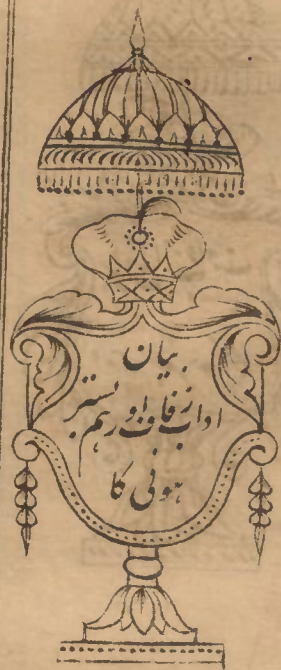 بیان
اداب زفاف اور ہم بستر
ہونی کا